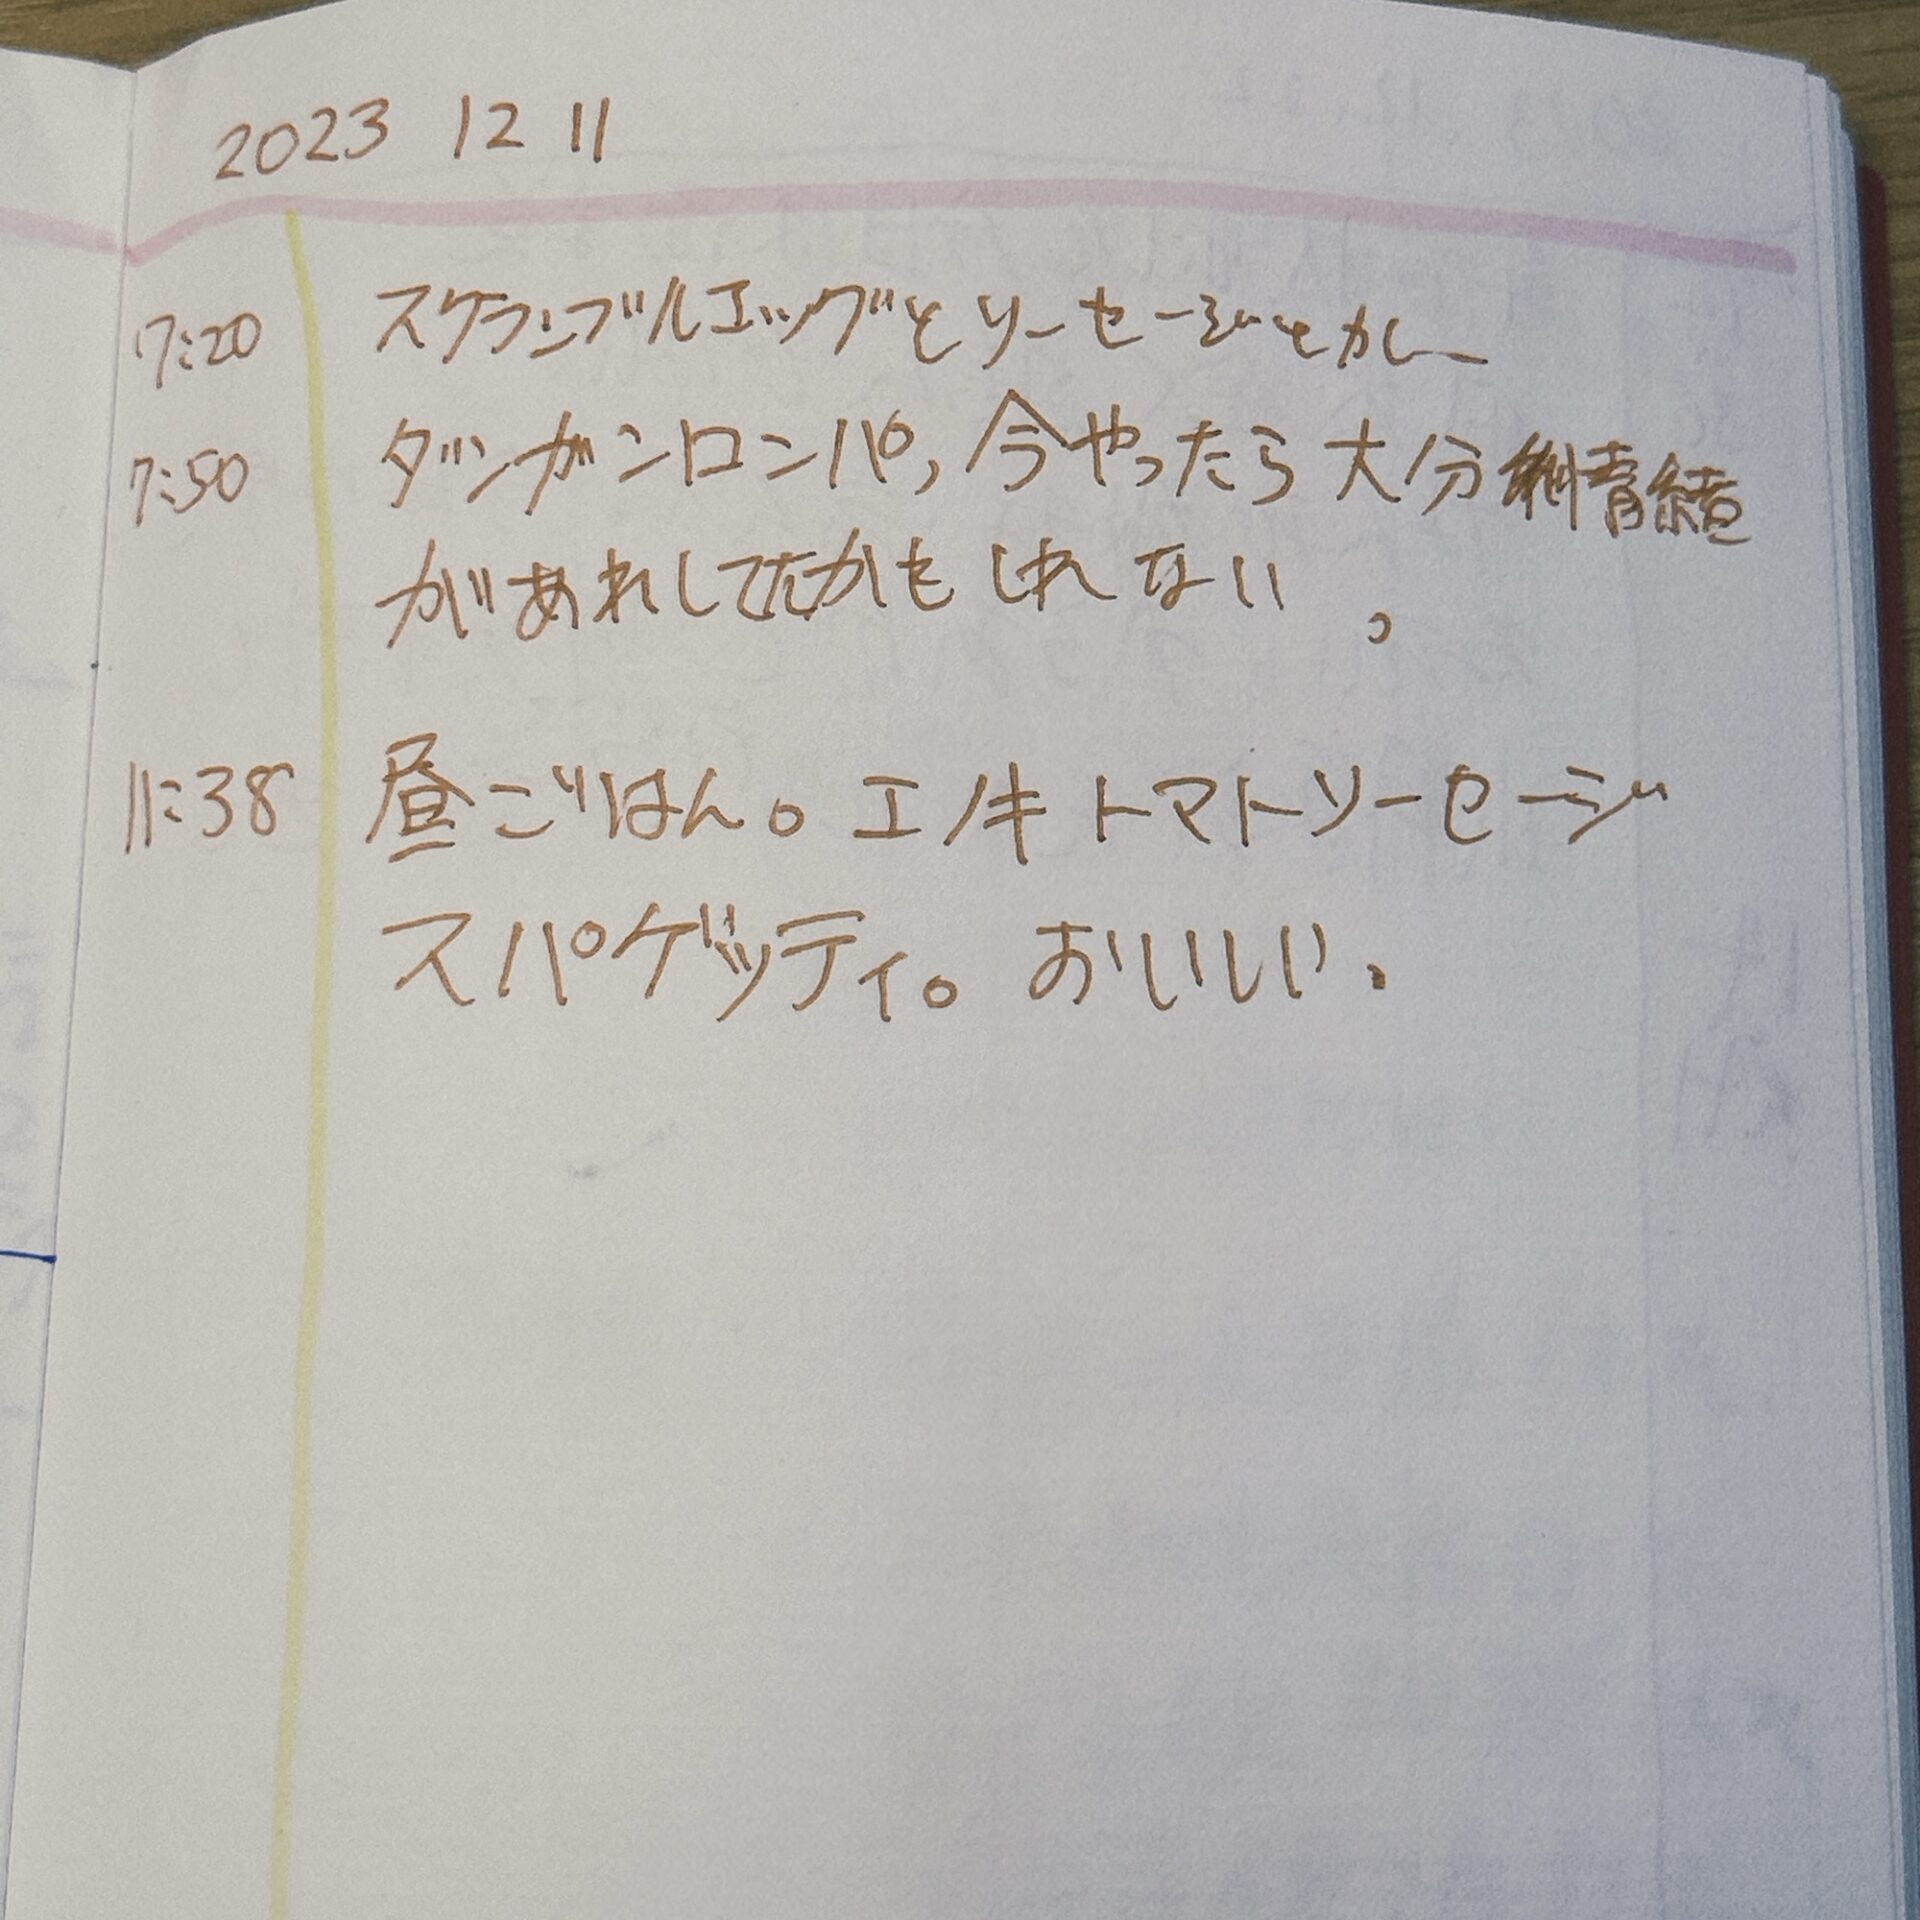 2023 12 11
7:20 スクランブルエッグとソーセージとカレー
7:50 ダンガンロンパ,今やったら大分情緒
があれしてたかもしれない。
11:38 昼ごはん。エノキトマトソーセージ
スパゲッティ。おいしい。